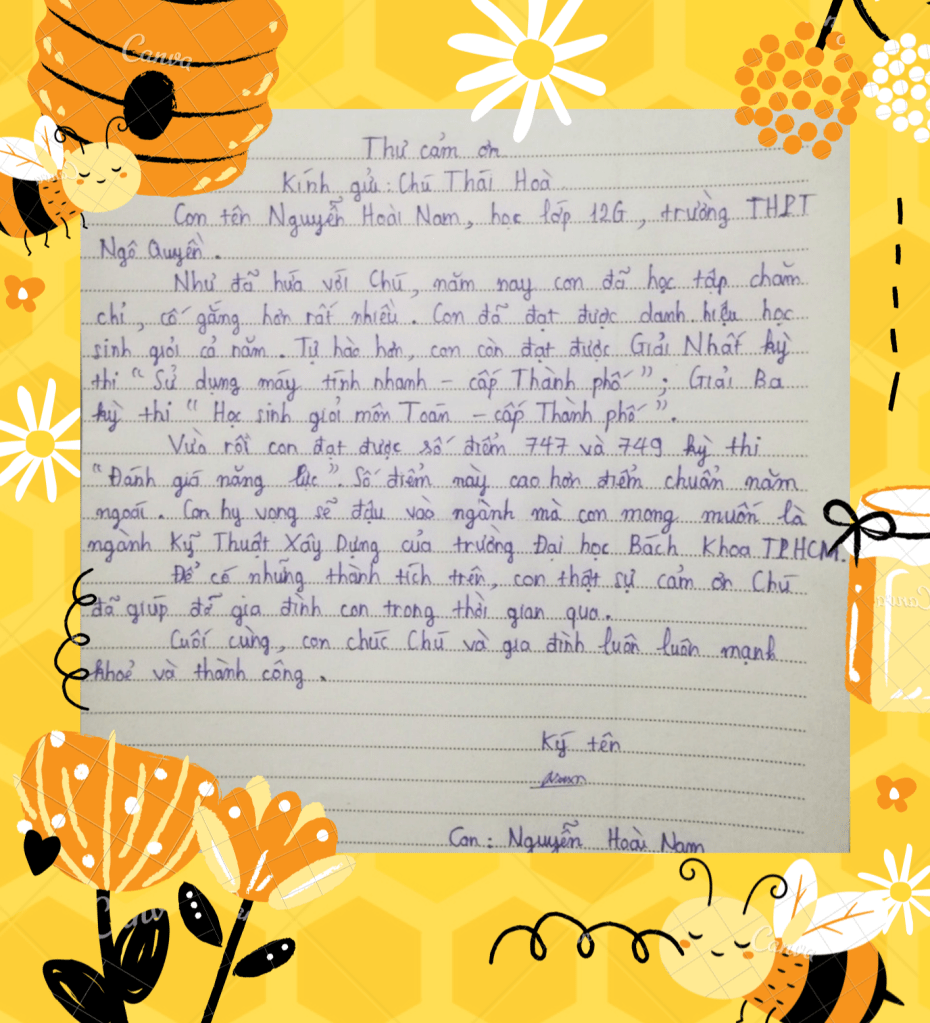 Canva
Thư cảm ơn
Kính gửi : Chú Thái Hoà
Con tên Nguyễn Hoài Nam, học lớp 12G, trường THPT
Ngô Quyền.
Như đã hứa với Chú, năm nay con đã học tập chăm
chỉ, cố gắng hơn rất nhiều. Con đã đạt được danh hiệu học
sinh giỏi cả năm. Tự hào hơn, con còn đạt được Giải Nhất kỳ
thi “Sử dụng máy tính nhanh – cấp Thành phố”; Giải Ba
kỳ thi “Học sinh giỏi môn Toán – cấp Thành phố”.
Vừa rồi con đạt được số điểm 747 và 749 kỳ thi
“Đánh giá năng lực”. Số điểm này cao hơn điểm chuẩn năm
ngoái. Con hy vọng sẽ đậu vào ngành mà con mong muốn là
ngành Kỹ Thuật Xây Dựng của trường Đại học Bách Khoa TP.HCM.
Để có những thành tích trên, con thật sự cảm ơn Chú
đã giúp đỡ gia đình con trong thời gian qua.
Cuối cùng, con chúc Chú và gia đình luôn luôn mạnh
khoẻ và thành công.
Ký tên
Nam
Con : Nguyễn Hoài Nam
Canva